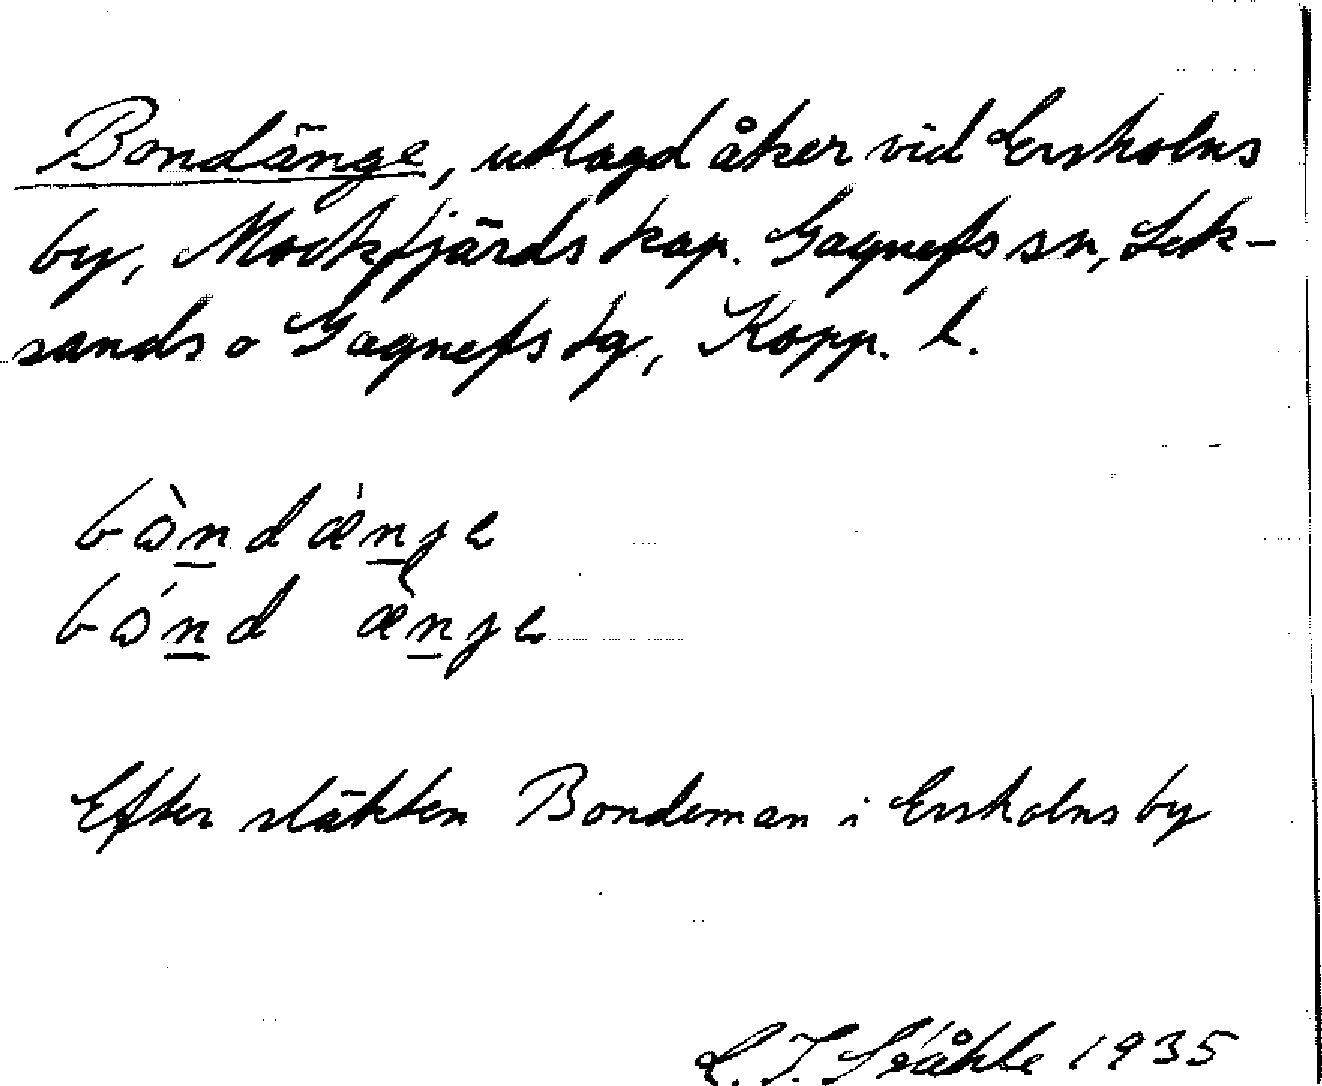 Bondänge, utlagd åker vid Ersholns
by, Mockfjärds kap. Gagnefs sn, Lek-
sands o Gagnefs tg, Kopp. l.
bònd ǽnge
bónd ænge
Efter släkten Bondeman i Ersholns by
C. I. Ståhle 1935